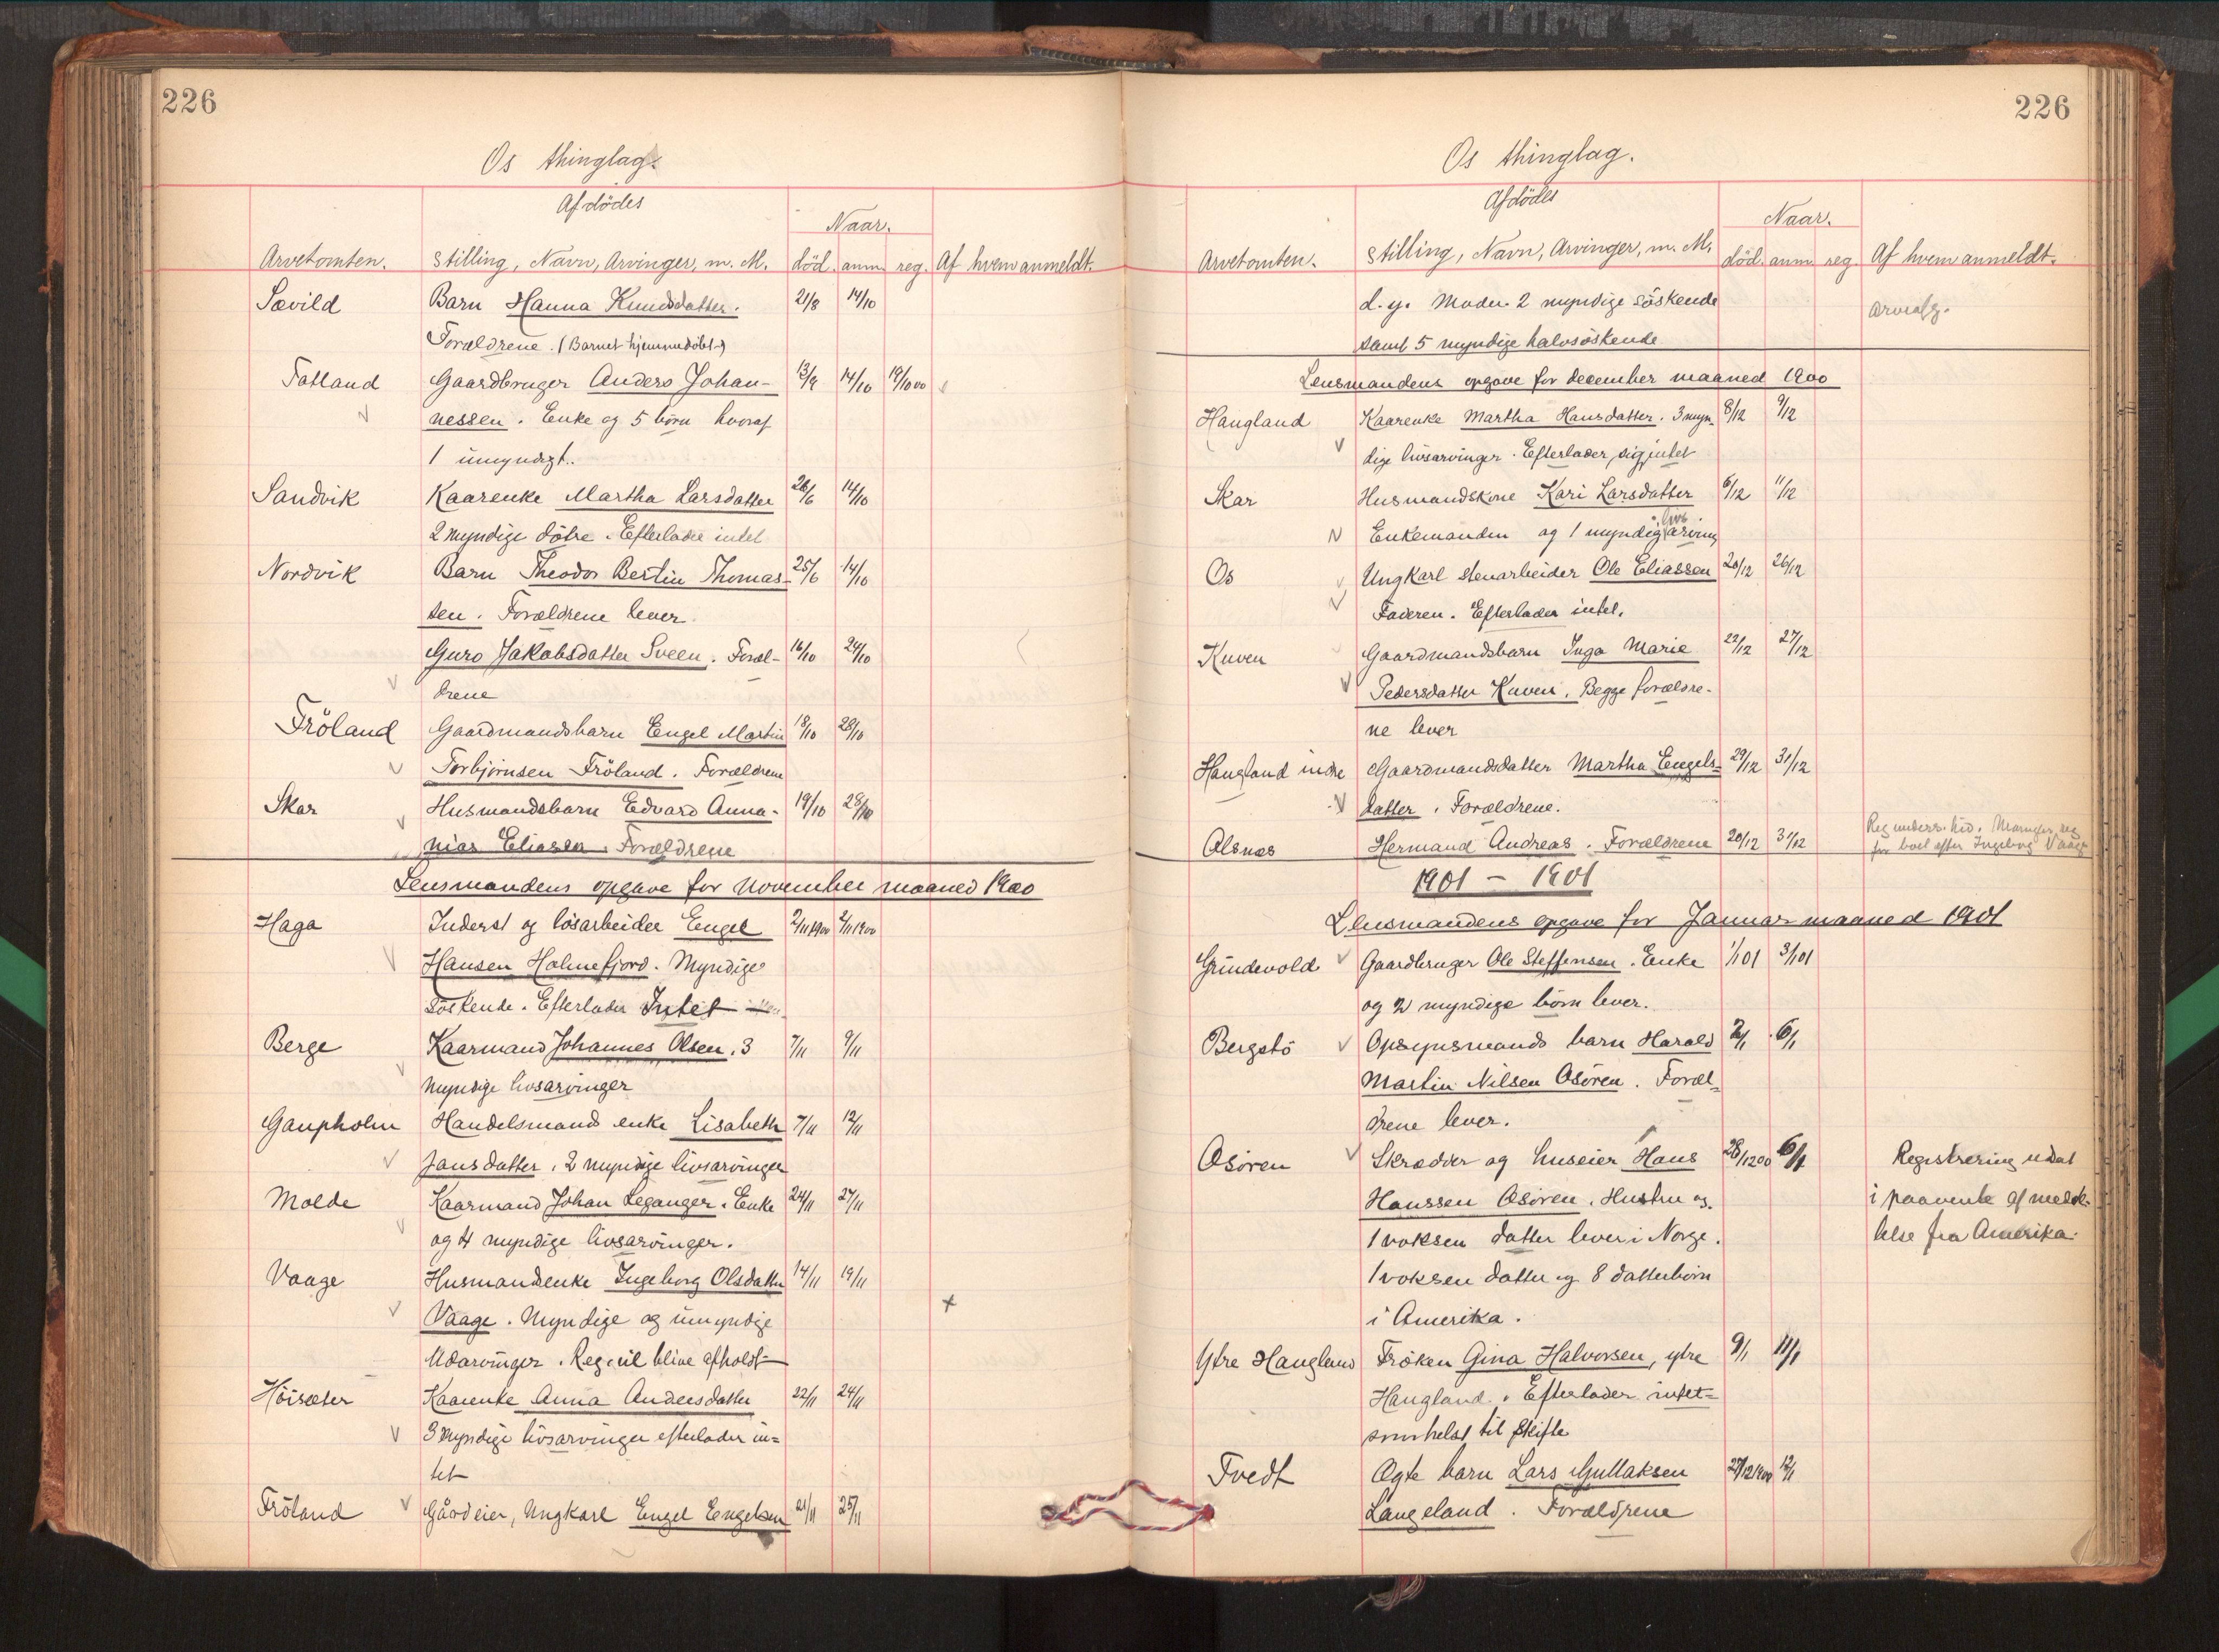 226
Os thinglag.
Afdödes
Naar.
Arvetomten. Stilling, Navn, Arvinger, m. M. död. anm. reg. Af hvem anmeldt.
Sævild Barn Hanna Knudsdatter. 21/8 14/10
Forældrene. (Barnet hjemmedöbt)
Tatland Gaardbruger Anders Johan- 13/9 14/10 19/10 00
nessen. Enke og 5 börn hvoraf
1 umyndigt.
Sandvik Kaarenke Martha Larsdatter 26/6 14/10
2 myndige dötre. Efterlader intet
Nordvik Barn Theodor Bertin Thomas- 25/6 14/10
sen. Forældrene lever
Guro Jakobsdatter Sveen. Foræl- 16/10 24/10
drene
Fröland Gaardmandsbarn Engel Martin 18/10 28/10
Torbjörnsen Fröland. Forældrene
Skar Husmandsbarn Edvard Anna- 19/10 28/10
nias Eliasen. Forældrene
Lensmandens opgave for November maaned 1900
Haga Inderst og lösarbeider Engel 2/11 1900 2/11 1900
Hansen Holmefjord. Myndige
Söskende. Efterlader Intet
Berge Kaarmand Johannes Olsen. 3 7/11 9/11
myndige livsarvinger
Gaupholm Handelsmands enke Lisabeth 7/11 12/11
Jansdatter. 2 myndige livsarvinger
Molde Kaarmand Johan Leganger. Enke 24/11 27/11
og 4 myndige livsarvinger.
Vaage Husmandsenke Ingeborg Olsdatter 14/11 19/11
Vaage. Myndige og umyndige +
Udarvinger. Reg. vil blive afholdt
Höisæter Kaarenke Anna Andersdatter 22/11 24/11
3 myndige livsarvinger efterlader in=
tet
Fröland Gårdeier, Ungkarl Engel Engelsen 21/11 25/11
226
Os thinglag.
Afdödes
Naar.
Arvetomten. Stilling, Navn, Arvinger, m. M. död. anm. reg. Af hvem anmeldt.
d. y. Moder. 2 myndige söskende
samt 5 myndige halvsöskende
Lensmandens opgave for december maaned 1900
Haugland Kaarenke Martha Hansdatter. 3 myn- 8/12 9/12
dige livsarvinger. Efterlader sig intet
Skar Husmandskone Kari Larsdatter 6/12 11/12
Enkemanden og 1 myndig livsarving
Os Ungkarl stenarbeider Ole Eliassen 20/12 26/12
Faderen. Efterlader intet.
Kuven Gaardmandsbarn Inga Marie 22/12 27/12
Pedersdatter Kuven. Begge forældre-
ne lever
Haugland indre Gaardmandsdatter Martha Engels= 29/12 31/12
datter. Forældrene.
Alsnes Hermand Andreas. Forældrene 20/12 31/12
1901 – 1901
Lensmandens opgave for Januar maaned 1901
Grindevold Gaardbruger Ole Steffensen. Enke 1/1 01 3/1 01
og 2 myndige börn lever.
Bergstö Opsynsmands barn Harald 2/1 6/1
Martin Nilsen Osören. Foræl-
drene lever.
Osören Skrædder og huseier Hans 28/12 00 6/1 Registrering udsat
Hanssen Osören. Hustru og i paavente af medde-
1 voksen datter lever i Norge. lelse fra Amerika.
1 voksen datter og 8 datterbörn
i Amerika.
Ytre Haugland Fröken Gina Halvorsen, ytre 9/1 11/1
Haugland. Efterlader intet=
somhelst til Skifte
Tvedt Ægte barn Lars Gullaksen 27/12 1900 12/1
Langeland. Forældrene